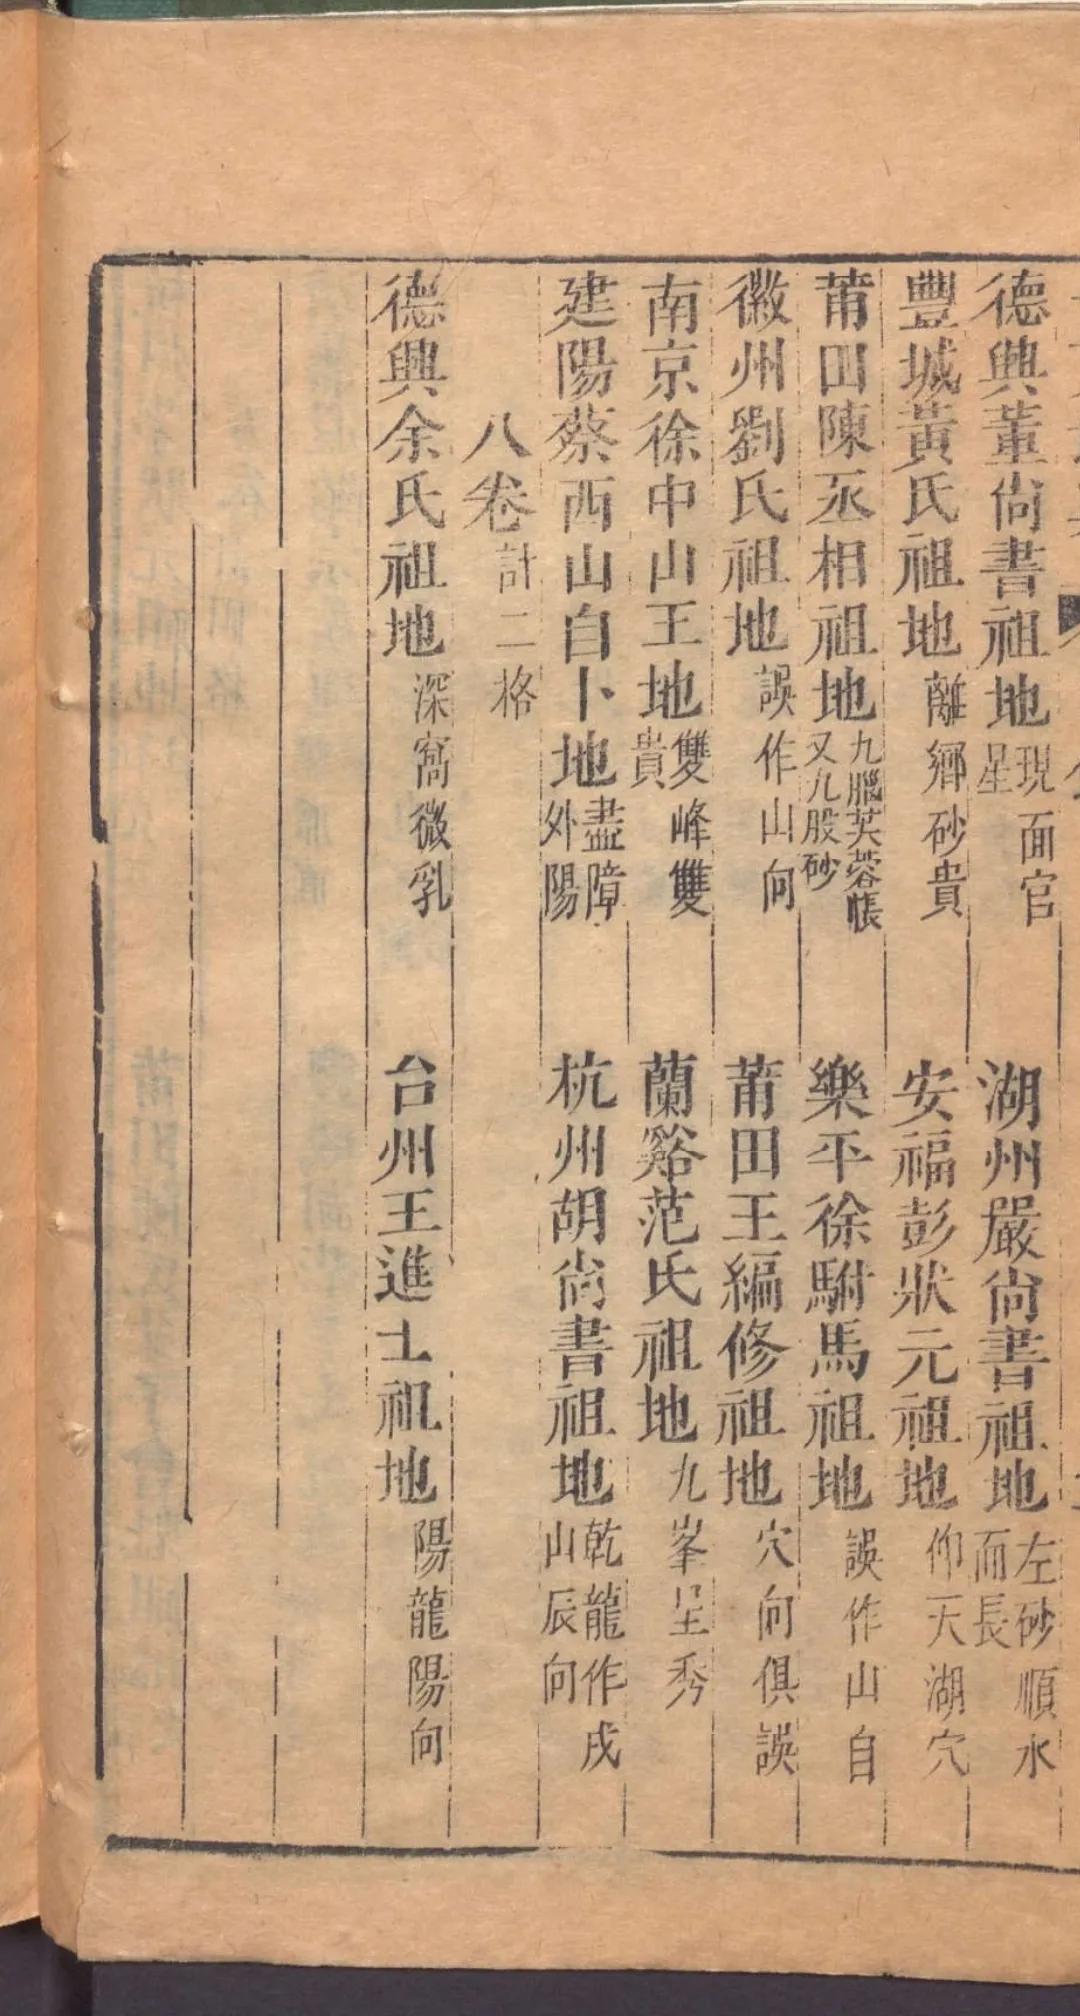 德興董尚書祖地 現面官星 湖州嚴尚書祖地 左砂順水而長
豐城黃氏祖地 離鄉砂貴 安福彭狀元祖地 仰天湖穴
莆田陳丞相祖地 九腦芙蓉帳又九股砂 樂平徐駙馬祖地 誤作山自
徽州劉氏祖地 誤作山向 莆田王編修祖地 穴向俱誤
南京徐中山王地 雙峰雙貴 蘭谿范氏祖地 九峯呈秀
建陽蔡西山自卜地 盡障外陽 杭州胡尚書祖地 乾龍作戌山辰向
八卷 計二格
德興余氏祖地 深窩微乳 台州王進士祖地 陽龍陽向